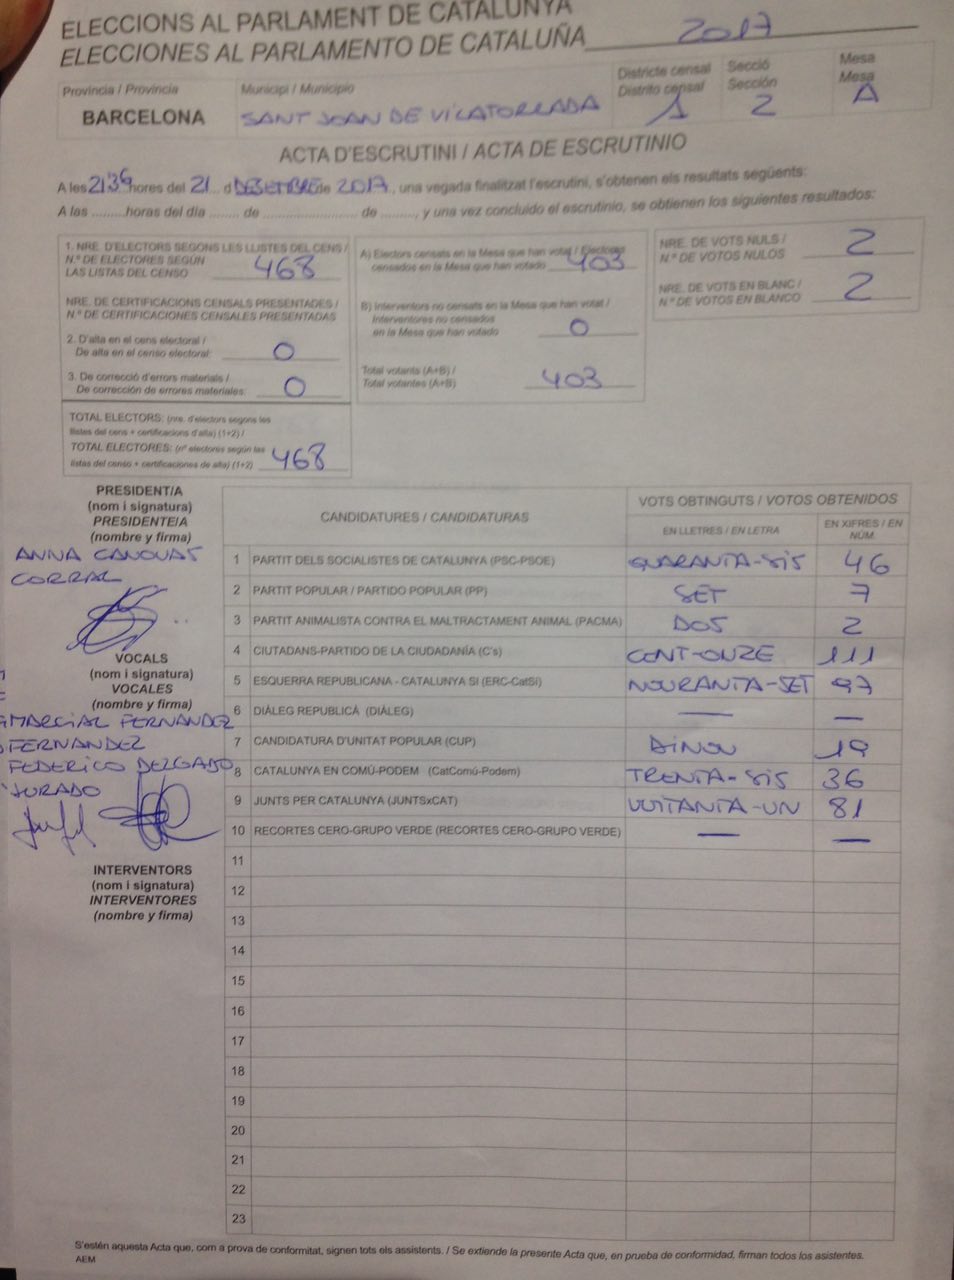 ELECCIONS AL PARLAMENT DE CATALUNYA
ELECCIONES AL PARLAMENTO DE CATALUÑA 2017
Província / Provincia
BARCELONA
Municipi / Municipio
SANT JOAN DE VILATORRADA
Districte censal
Distrito censal
1
Secció
Sección
2
Mesa
Mesa
A
ACTA D'ESCRUTINI / ACTA DE ESCRUTINIO
A les 21'36 hores del 21 d DESEMBRE de 2017, una vegada finalitzat l'escrutini, s'obtenen els resultats següents:
A las ........horas del día ........ de ........................ de ........., y una vez concluido el escrutinio, se obtienen los siguientes resultados:
1. NRE. D'ELECTORS SEGONS LES LLISTES DEL CENS /
N.º DE ELECTORES SEGÚN
LAS LISTAS DEL CENSO 468
NRE. DE CERTIFICACIONS CENSALS PRESENTADES /
N.º DE CERTIFICACIONES CENSALES PRESENTADAS
2. D'alta en el cens electoral /
De alta en el censo electoral: 0
3. De correcció d'errors materials /
De corrección de errores materiales: 0
TOTAL ELECTORS: (nre. d'electors segons les
llistes del cens + certificacions d'alta) (1+2) /
TOTAL ELECTORES: (nº electores según las
listas del censo + certificaciones de alta) (1+2) 468
A) Electors censats en la Mesa que han votat / Electores
censados en la Mesa que han votado 403
B) Interventors no censats en la Mesa que han votat /
Interventores no censados
en la Mesa que han votado 0
Total votants (A+B) /
Total votantes (A+B) 403
NRE. DE VOTS NULS /
N.º DE VOTOS NULOS 2
NRE. DE VOTS EN BLANC /
N.º DE VOTOS EN BLANCO 2
PRESIDENT/A
(nom i signatura)
PRESIDENTE/A
(nombre y firma)
ANNA CANOVAS
CORRAL
VOCALS
(nom i signatura)
VOCALES
(nombre y firma)
MARCIAL FERNANDEZ
FERNANDEZ
FEDERICO DELGADO
JURADO
INTERVENTORS
(nom i signatura)
INTERVENTORES
(nombre y firma)
CANDIDATURES / CANDIDATURAS
VOTS OBTINGUTS / VOTOS OBTENIDOS
EN LLETRES / EN LETRA
EN XIFRES / EN NÚM.
1 PARTIT DELS SOCIALISTES DE CATALUNYA (PSC-PSOE) QUARANTA-SIS 46
2 PARTIT POPULAR / PARTIDO POPULAR (PP) SET 7
3 PARTIT ANIMALISTA CONTRA EL MALTRACTAMENT ANIMAL (PACMA) DOS 2
4 CIUTADANS-PARTIDO DE LA CIUDADANÍA (C's) CENT-ONZE 111
5 ESQUERRA REPUBLICANA - CATALUNYA SI (ERC-CatSí) NOURANTA-SET 97
6 DIÀLEG REPUBLICÀ (DIÀLEG) — —
7 CANDIDATURA D'UNITAT POPULAR (CUP) DINOU 19
8 CATALUNYA EN COMÚ-PODEM (CatComú-Podem) TRENTA-SIS 36
9 JUNTS PER CATALUNYA (JUNTSxCAT) VUITANTA-UN 81
10 RECORTES CERO-GRUPO VERDE (RECORTES CERO-GRUPO VERDE) — —
11
12
13
14
15
16
17
18
19
20
21
22
23
S'estén aquesta Acta que, com a prova de conformitat, signen tots els assistents. / Se extiende la presente Acta que, en prueba de conformidad, firman todos los asistentes.
AEM